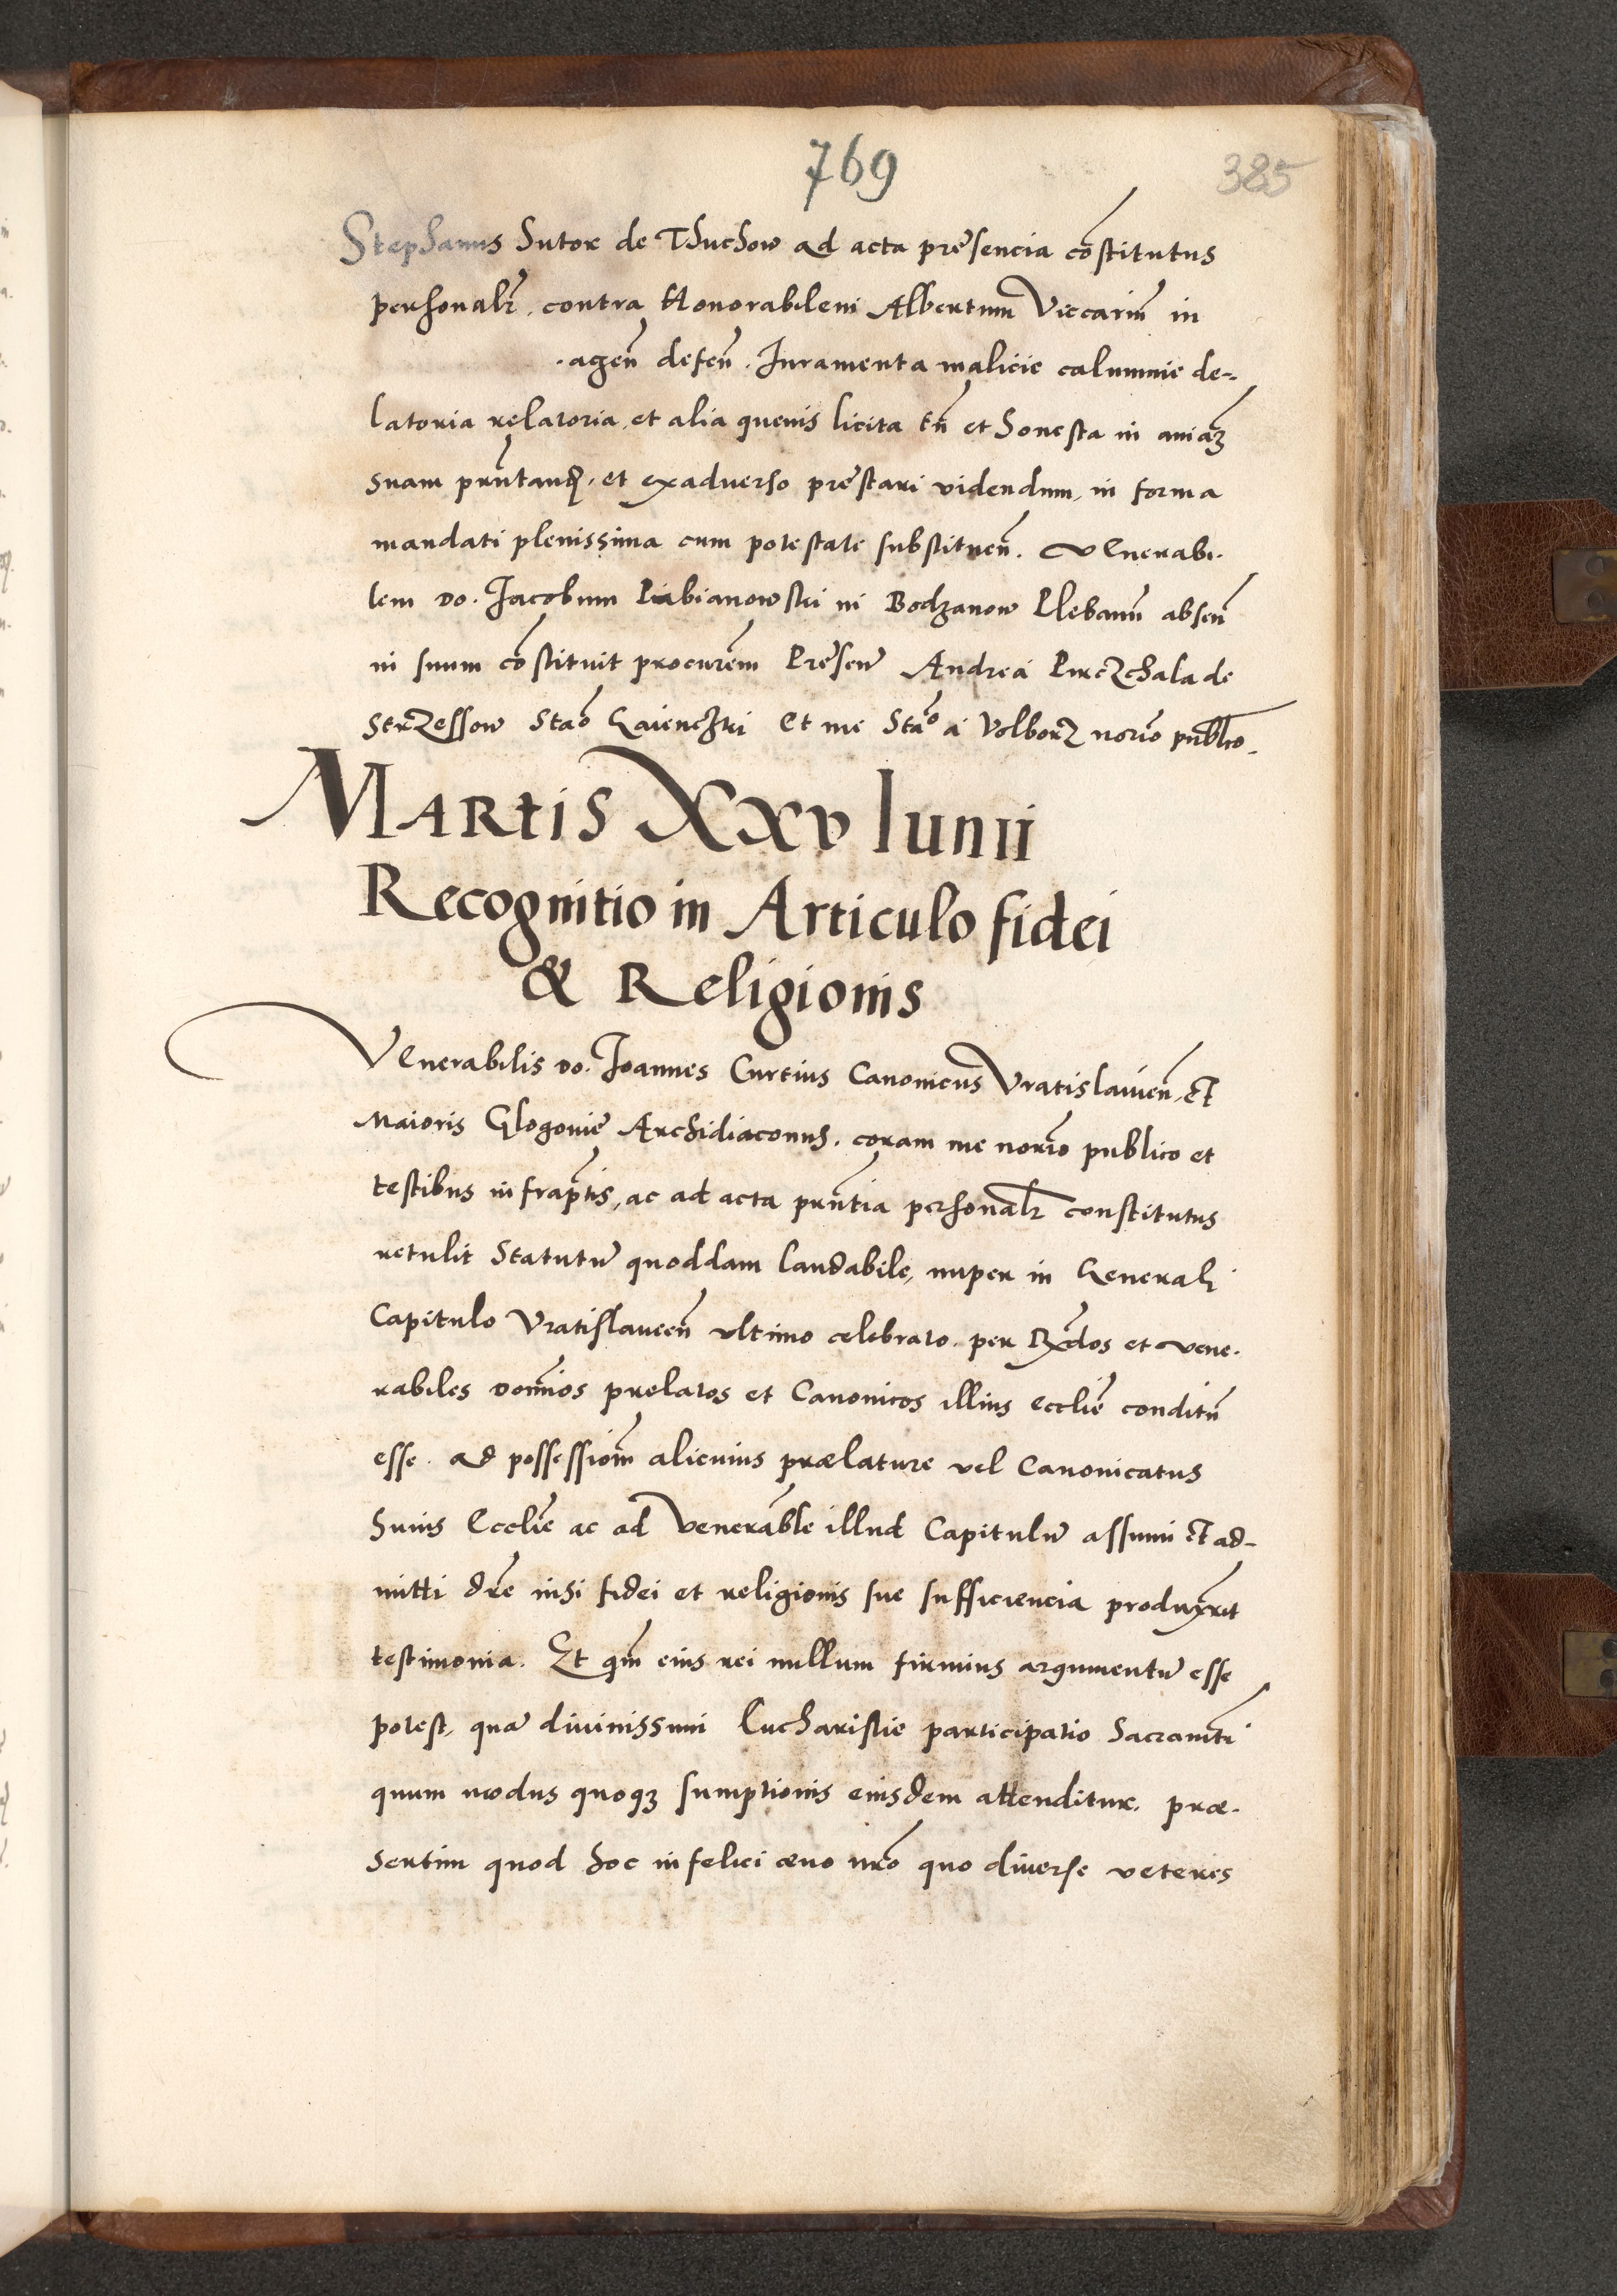 769
385
Stephanus Sutor de Thuchow ad acta presencia cōstitutus
personalr̄. contra Honorabilem Albertum Viccariū in
. agen̄ defen̄. Iuramenta malicie calumnie de-
latoria relatoria, et alia quevis licita tn̄ et honesta in aniā
suam pn̄tand. et exadverso prestari videndum, in forma
mandati plenissima cum potestate substituen̄. Venerabi-
lem do. Jacobum Pabianowski in Bodzanow Plebanū absen̄
in suum cōstituit procurēm Presen̄ Andrea Pirczchala de
Strzessow Staō Gaienczki Et me Staō a Volborz norīo publīco.
Martis XXV Iunii
Recognitio in Articulo fidei
& Religionis
Venerabilis do. Joannes Curtius Canonicus Vratislavien̄. et
Maioris Glogovie Archidiaconus. coram me norīo publico et
testibus infrapt̄is, ac ad acta pn̄tia personalr̄ constitutus
retulit Statutū quoddam laudabile, nuper in Generali
Capitulo Vratislavcen̄ ultimo celebrato. per Rx̄dos et vene-
rabiles domīnos prelatos et Canonicos illius Eccliē conditū
esse. ad possessionē alicuius prælature vel Canonicatus
huius Eccliē ac ad venerāble illud Capitulū assumi et ad-
mitti drē nisi fidei et religionis sue sufficiencia produxerit
testimonia. Et qm̄ eius rei nullum firmius argumentū esse
potest, quā divinissimi Eucharistie participatio Sacramt̄i
quum modus quoqз sumptionis eiusdem attenditur. præ-
sertim quod hoc infelici ævo nr̄o quo diverse veteres